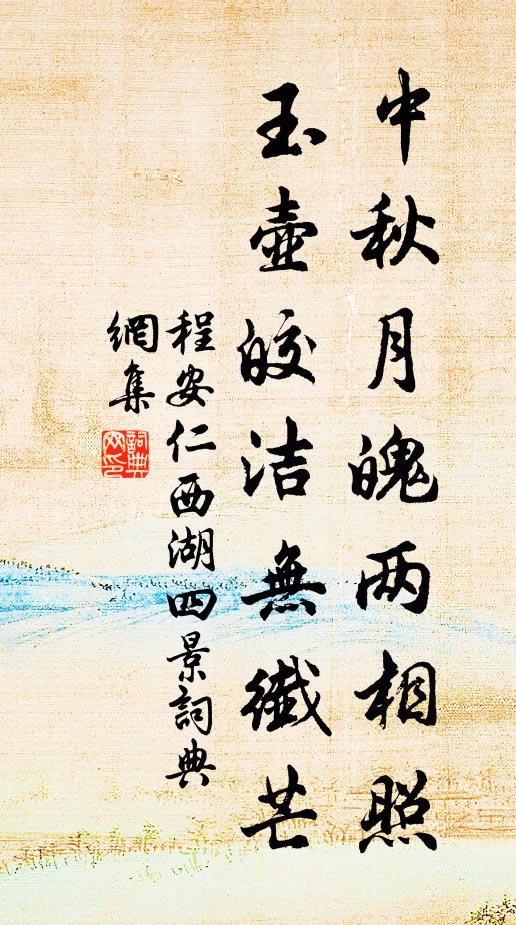 中秋月魄两相照
玉壶皎洁無纖芒
程安仁西湖四景詞典
網集
詞典
网印